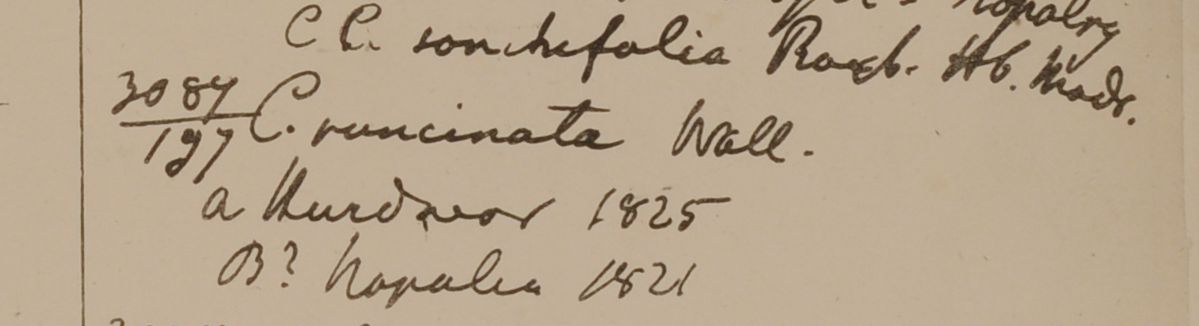 Napalry
C C. sonchifolia Roxb. Hb. Madr.
3087/197 C. runcinata Wall.
a Hurdwar 1825
B? Napalia 1821